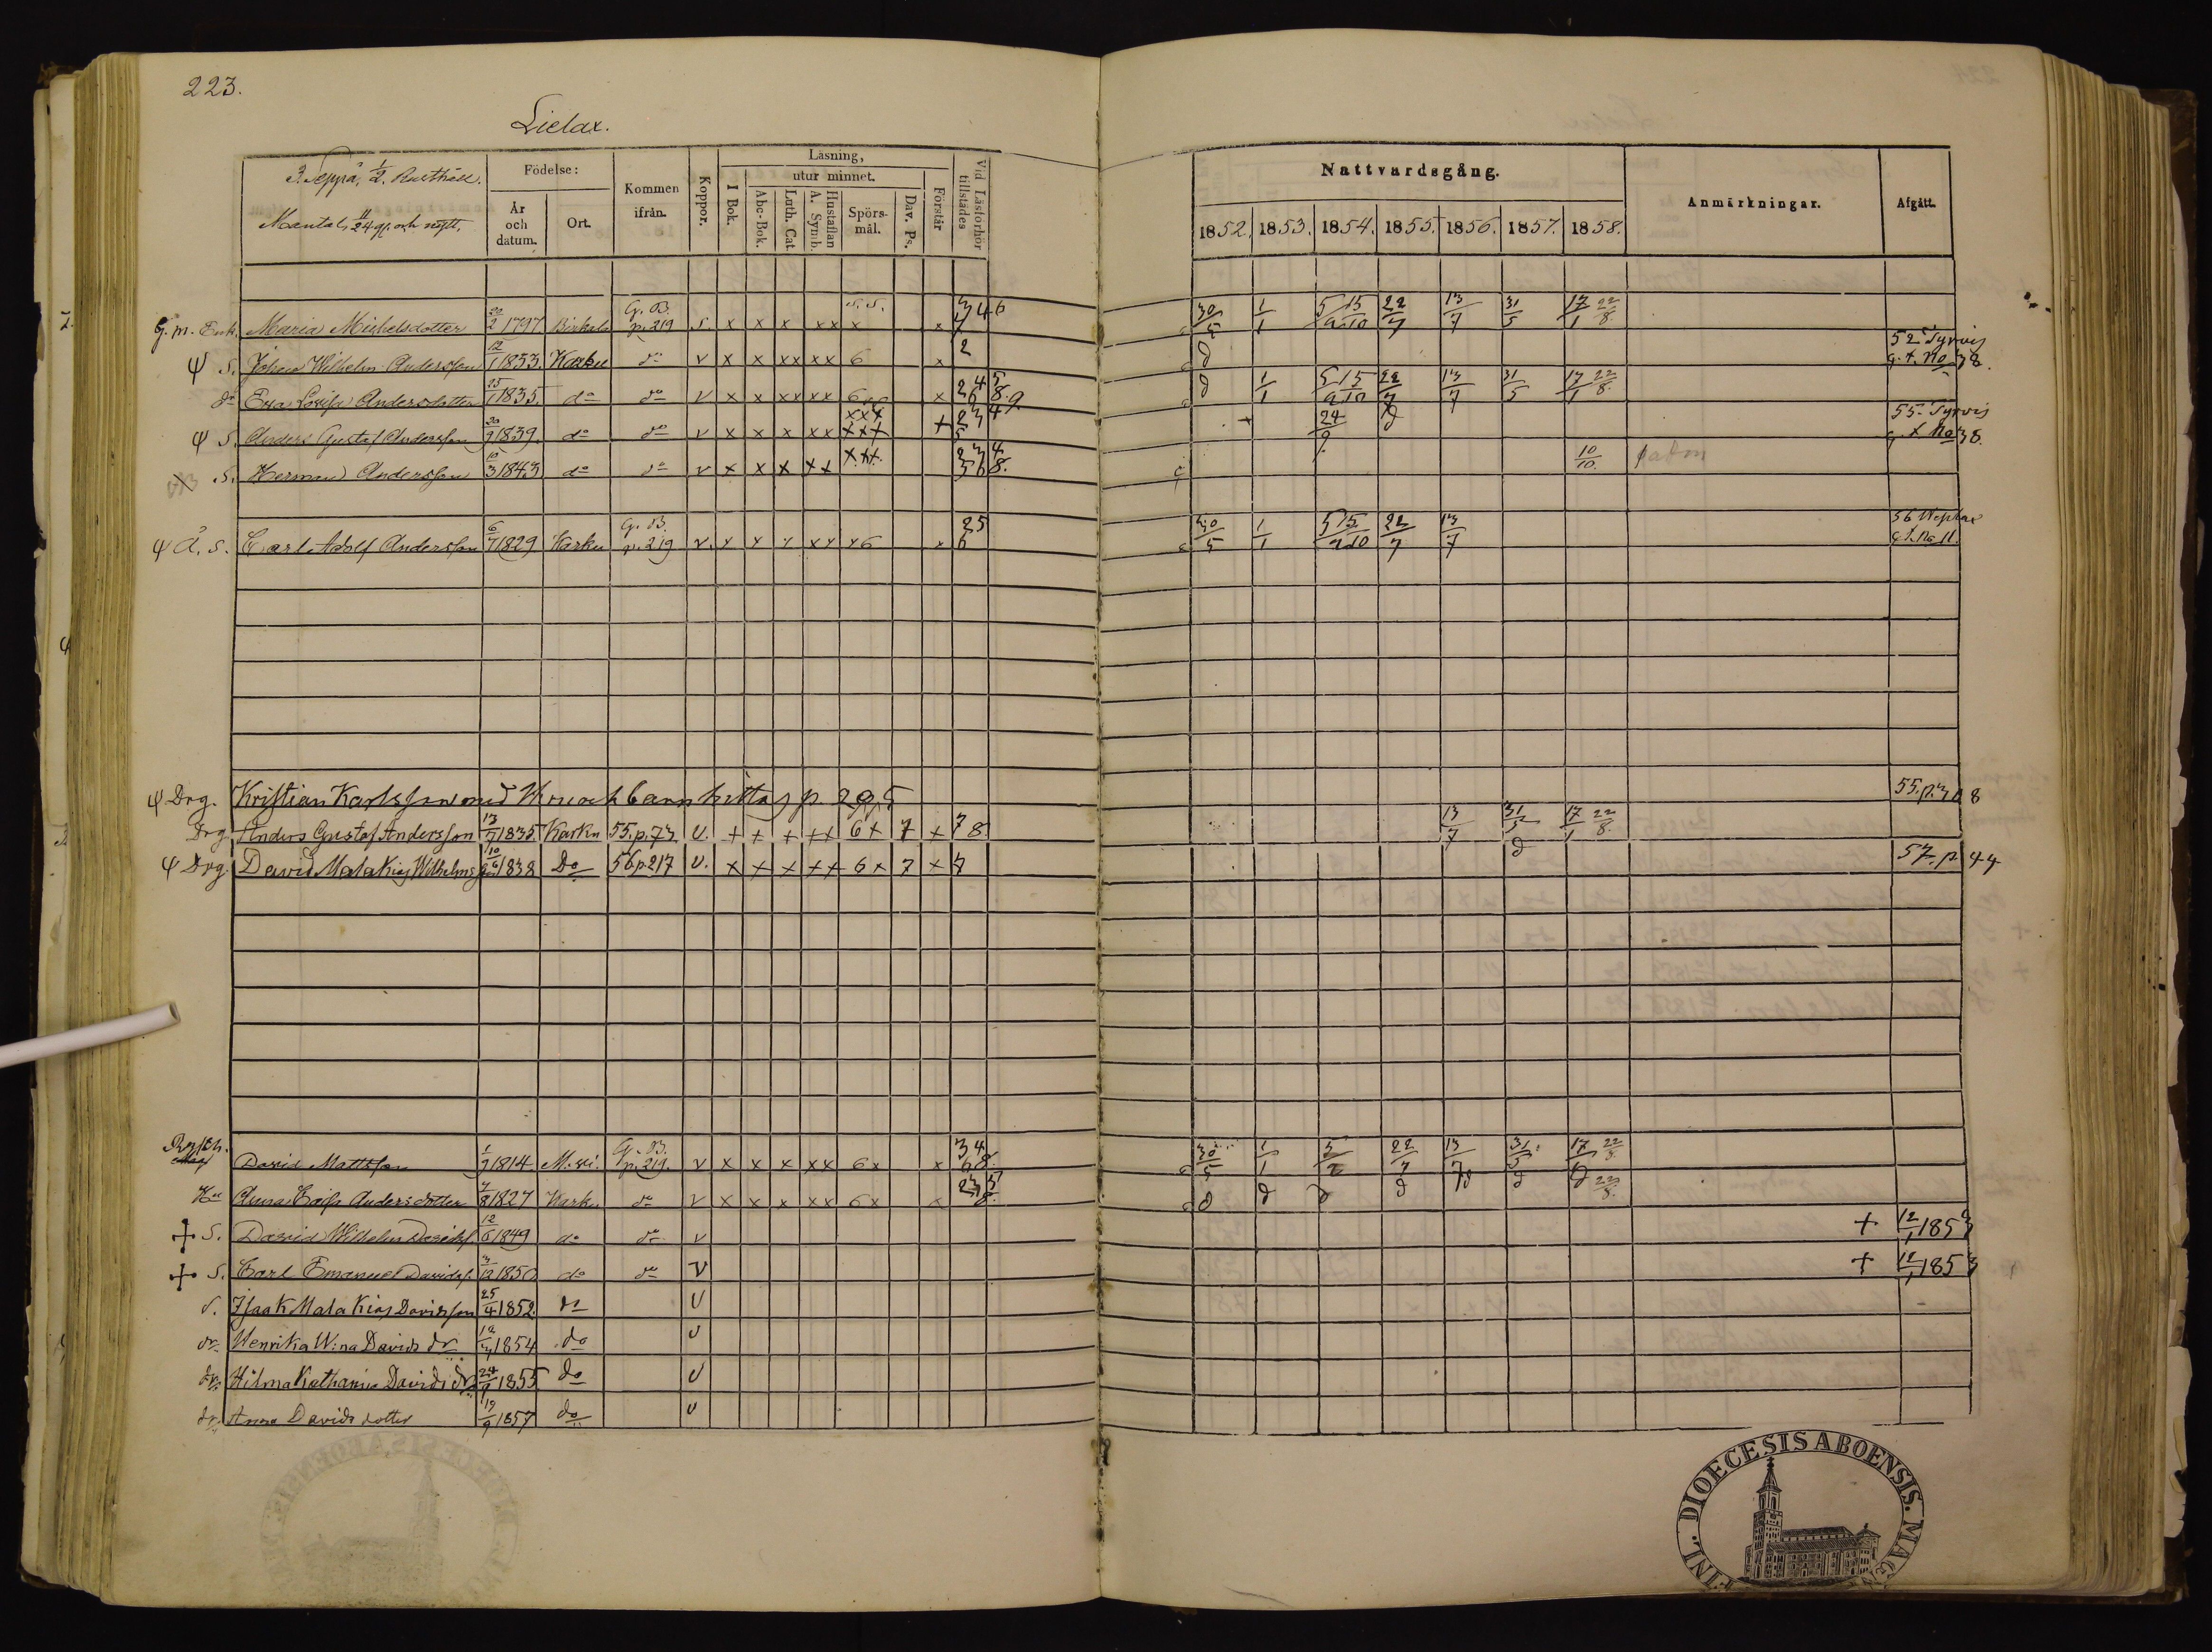 223.
Lielax.
3. Seppä, 1/2 Rusthåll.
Mantal, 11/24 gl. och nytt.
Födelse:
År och datum.
Ort.
Kommen ifrån.
Koppor.
Läsning,
I Bok.
utur minnet.
Abc-Bok.
Luth. Cat.
Hustaflan A. Symb.
Spörs-mål.
Dav. Ps.
Förstår
Vid Läsförhör tillstädes
Nattvardsgång.
1852. 1853. 1854. 1855. 1856. 1857. 1858.
Anmärkningar.
Afgått.
G. m. Enk. Maria Michelsdotter 20/2 1797 Birkala G. B. p. 219 s x x x xx x x 3 4 6 7 30/5 1/1 5/2 15/10 22/7 13/7 31/5 17/1 22/8.
ψ S. Johan Wilhelm Andersson 12/1 1833. Karku do v x x xx xx 6 x 2 52 Tyrvis g. t. No 38.
do Eva Lovisa Andersdotter 25/1 1835. do do v x x xx xx 6 x 2 4 5 6 8 9. 1/1 5/2 15/10 22/7 13/7 31/5 17/1 22/8.
ψ S. Anders Gustaf Andersson 20/9 1839. do do v x x x xx xxx xxx + 2 3 4 5 24/9 55 Tyrvis g. t. No 38.
S. Herman Andersson 10/3 1843 do do v x x x xx xxx. 2 3 4 5 6 8. 10/10.
ψ Å. S. Carl Adolf Andersson 6/7 1829 Karku G. B. p. 219 v. x x x xx x6 x 2 5 6 30/5 1/1 5/2 15/10 22/7 13/7 56 g. t. No 11.
ψ Drg. Kristian Karlsson med Hru och barn hittas p. 295 55. p. 308
Drg. Anders Gustaf Andersson 13/7 1835 Karku 55. p. 73 v. + + + ++ 6+ 7 + 7 8. 13/7 31/5 17/1 22/8.
ψ Drg. David Malakias Wilhelmsson 10/6 1838 Do 56 p 217 v. x x x xx 6 x 7 x 7 57. p. 44
Rusth. Måg David Mattsson 1/9 1814 G. B. p. 219. v x x x xx 6x x 3 4 6 8. 30/5 1/1 5/2 22/7 13/7 31/5 17/1 22/8.
Hu Anna Caisa Andersdotter 7/8 1827 Karku do v x x x xx 6x x 2 3 5 7 8. 22/8.
+ S. David Wilhelm Davidss. 12/6 1849 do do v + 12/1 1853
+ S. Carl Emanuel Davidss. 3/12 1850 do do v + 12/1 1853
S. Isaak Malakias Davidsson 25/4 1852. do v
dr. Henrika W:na Davids dr 12/3 1854 do v
dr. Hilma Katharina Davids dr 24/9 1855 do v
dr. Anna Davids dotter 19/9 1857 do v
FINL. DIOECESIS ABOENSIS. MAG